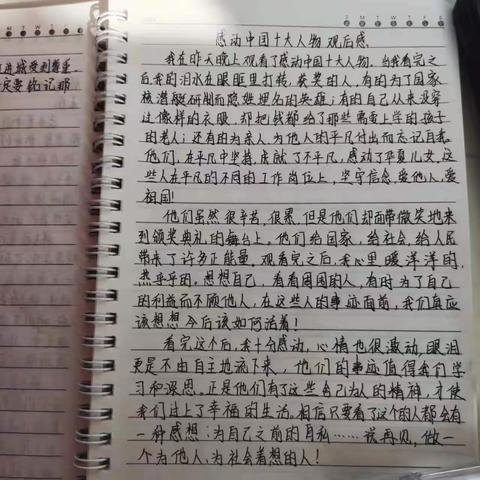 感动中国十大人物观后感
我在昨天晚上观看了感动中国十大人物。当我看完之
后我的泪水在眼眶里打转,获奖的人,有的为了国家
核潜艇研制而隐姓埋名的英雄;有的自己从来没穿
过像样的衣服,却把钱都给了那些需要上学的孩子
的老人;还有的为亲人、为他人的平凡付出而忘记自我。
他们,在平凡中坚持,成就了不平凡,感动了华夏儿女,这
些人在平凡的不同的工作岗位上,坚守信念,爱他人,爱
祖国!
他们虽然很辛苦,很累,但是他们却面带微笑地来
到颁奖典礼的舞台上,他们给国家、给社会、给人民
带来了许多正能量。观看完之后,我心里暖洋洋的,
热乎乎的。想想自己,看看周围的人,有时为了自己
的利益而不顾他人,在这些人的事迹面前,我们真应
该想想今后该如何活着!
看完这个后,我十分感动,心情也很激动,眼泪
更是不由自主地流下来,他们的事迹值得我们学
习和深思。正是他们有了这些舍己为人的精神,才使
我们过上了幸福的生活。相信只要看了这个的人都会有
一种感想:为自己之前的自私……说再见,做一
个为他人、为社会着想的人!
且进城受到尊重,
定要铭记那